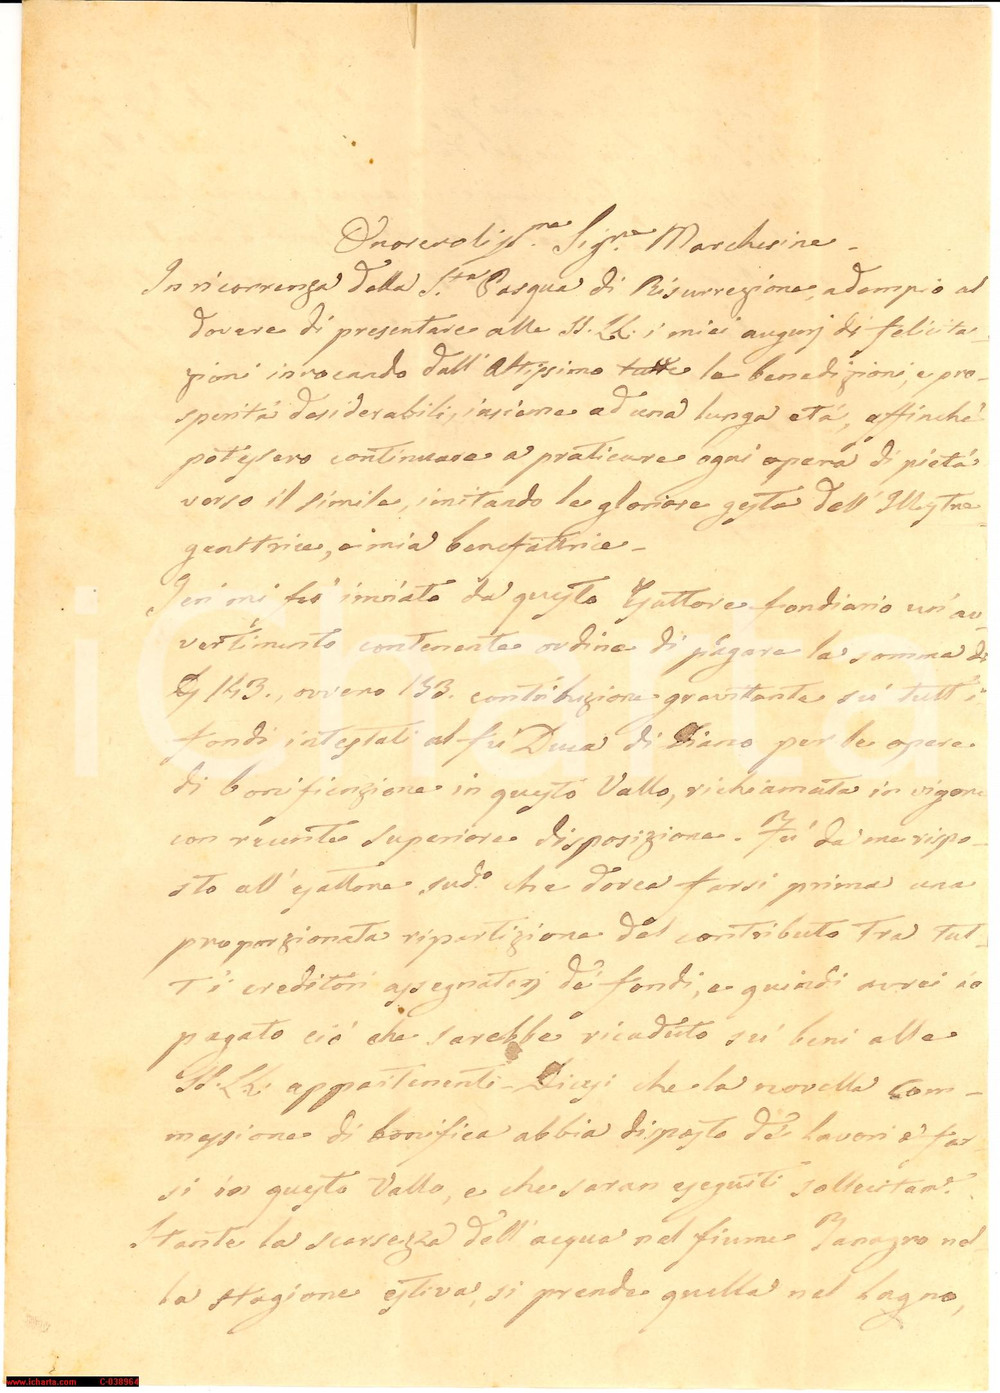 Onorevoliss.me Sig.re Marchesine -
In ricorrenza della S.ta Pasqua di Risurrezione, adempio al
dovere di presentare alle SS. LL: i miei augurj di felicita-
zioni invocando dall'Altissimo tutte le benedizioni, e pro-
sperità desiderabili, insieme ad una lunga età, affinchè
potessero continuare a praticare ogni opera di pietà
verso il simile, imitando le gloriose gesta dell'Illustre
genitrice, e mia benefattrice -
Ieri mi fu inviato da questo Esattore fondiario un'av-
vertimento contenente ordine di pagare la somma di
143., ovvero 153. contribuzione gravitante su' tutt'i
fondi intestati al fu Duca di Diano per le opere
di bonificazione in questo Vallo, richiamata in vigore
con recente superiore disposizione. Fu' da me rispo-
sto all'esattore sud.o che dovea farsi prima una
proporzionata ripartizione del contributo tra tut-
t'i creditori assegnatarj de' fondi, e quindi avrei io
pagato ciò che sarebbe ricaduto su' beni alle
SS. LL: appartenenti - Dicesi che la novella Com-
messione di bonifica abbia disposto de' lavori a far-
si in questo Vallo, e che saran eseguiti sollecitam.e
Stante la scarsezza dell'acqua nel fiume Tanagro nel-
la stagione estiva, si prende quella nel Lagno,
iCharta
www.icharta.com C-038964